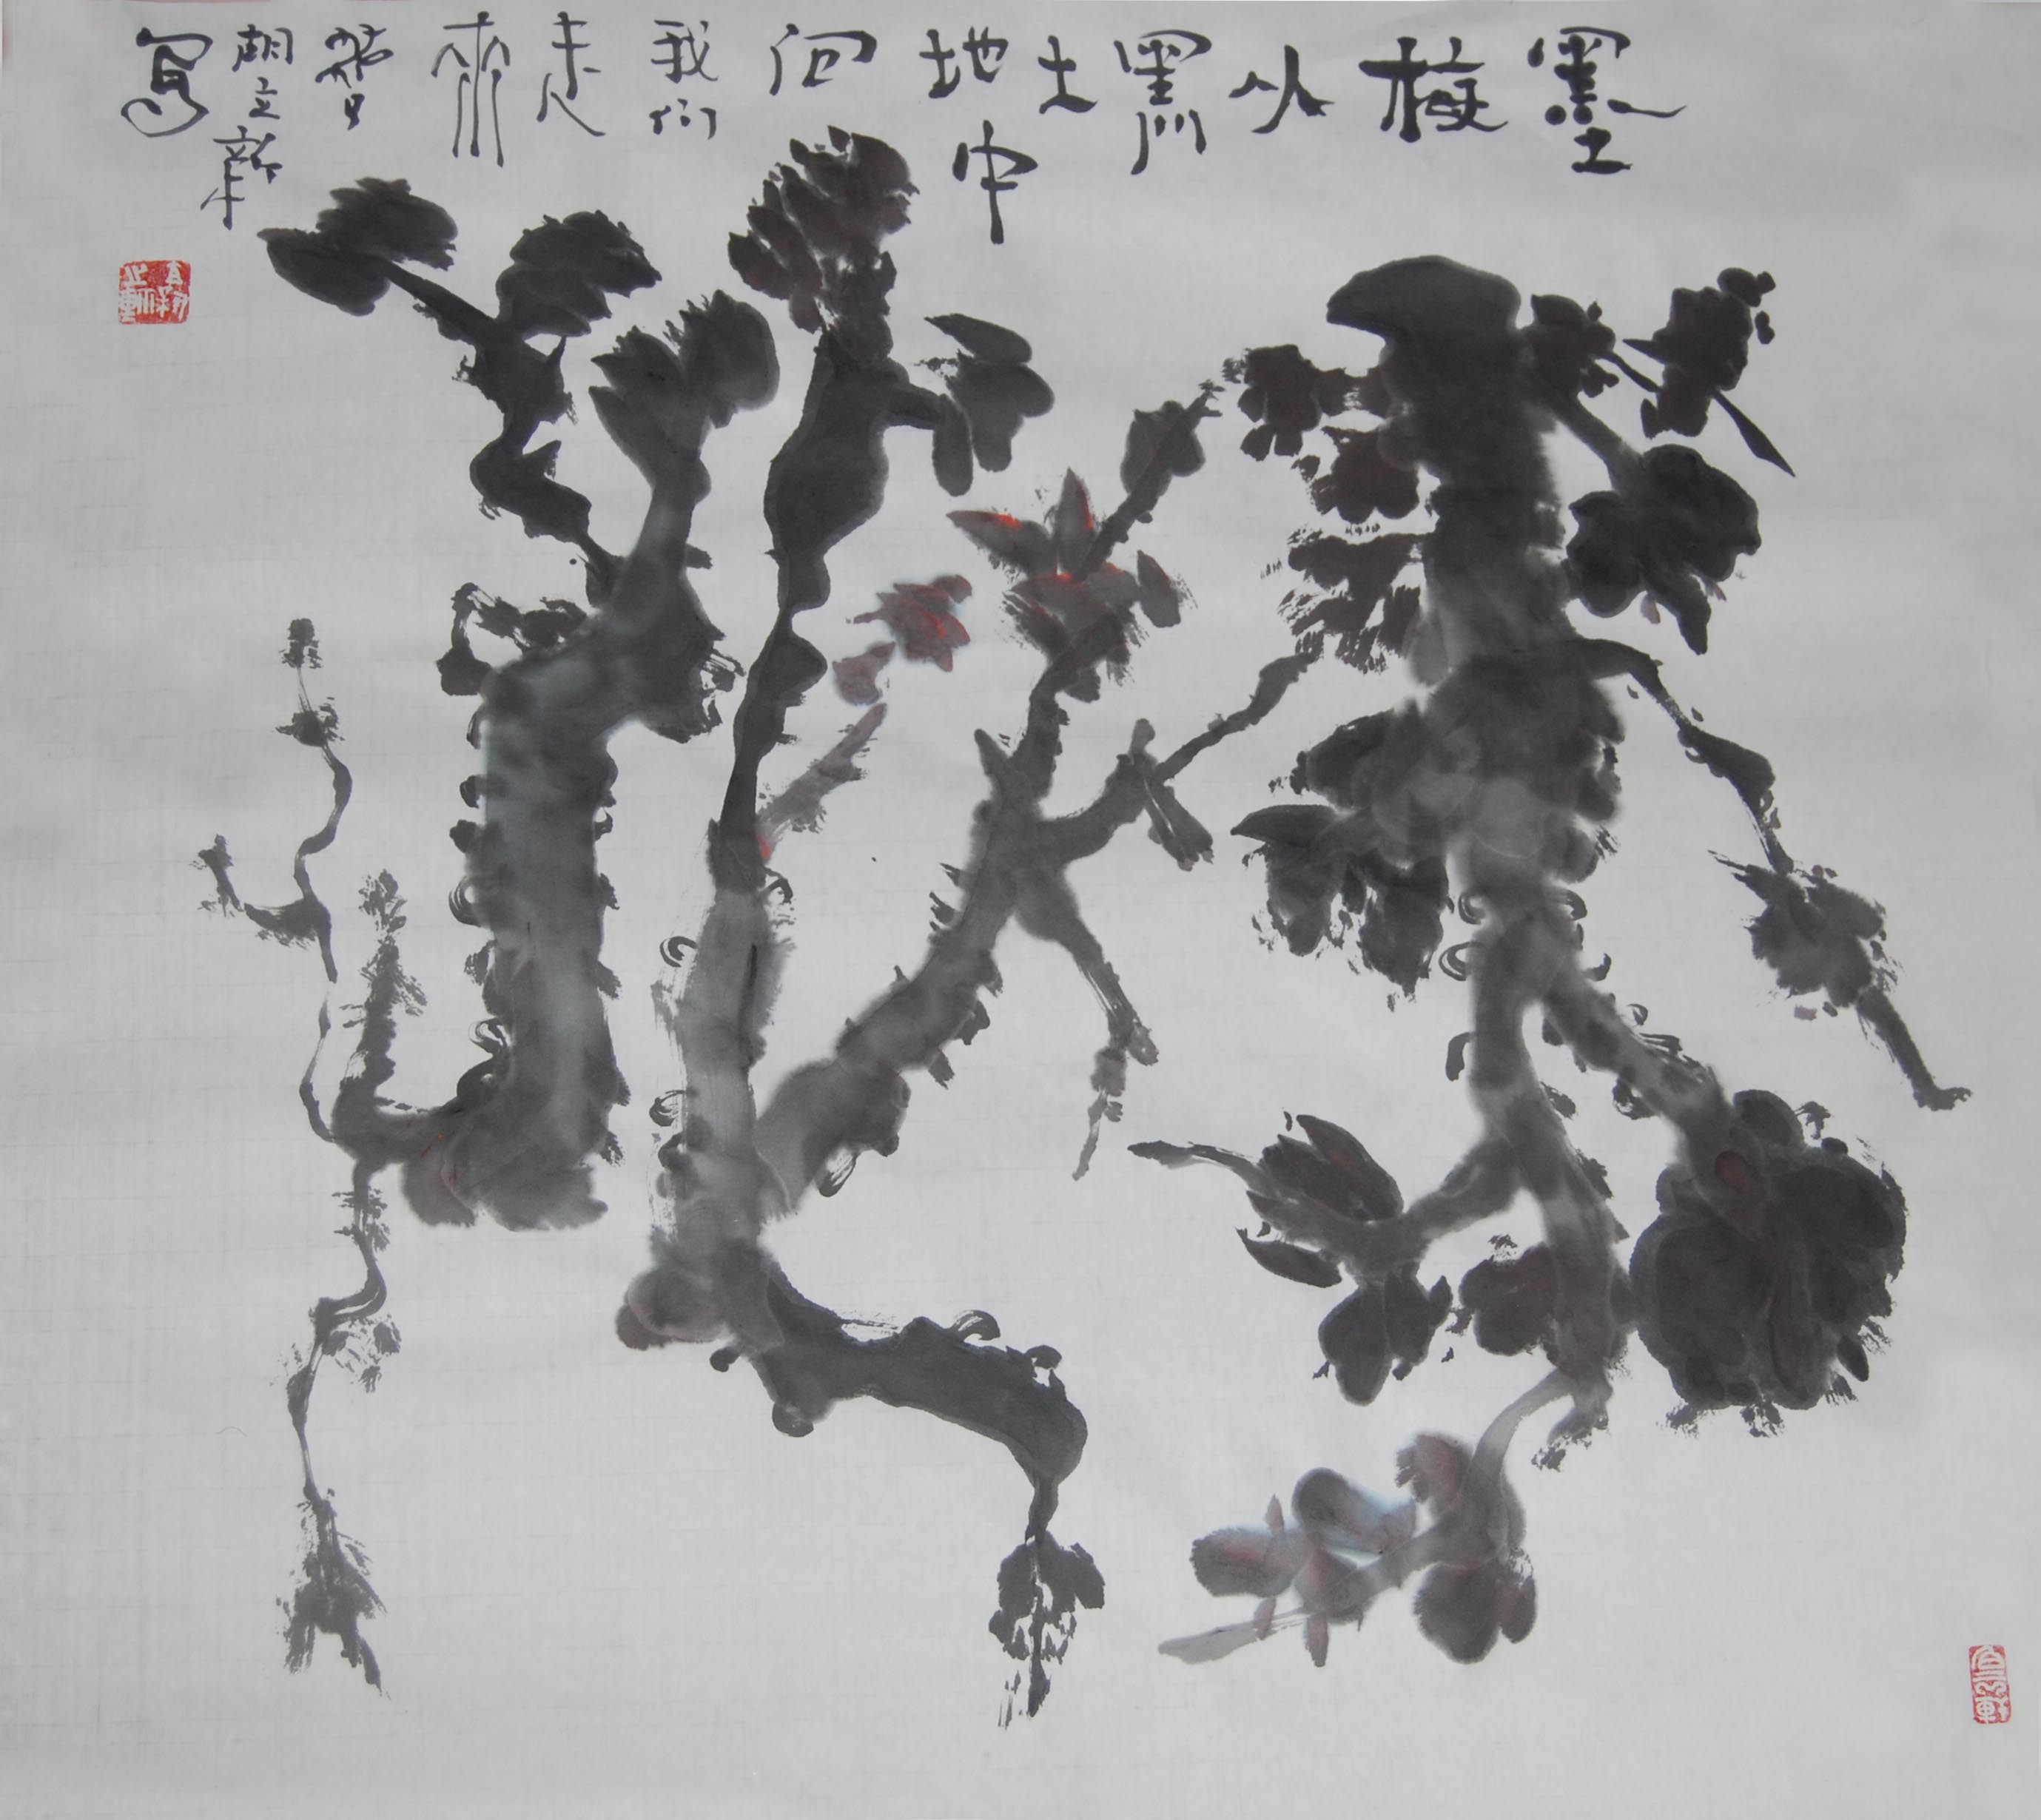 墨梅从黑土地中向我们走来
胡立新写